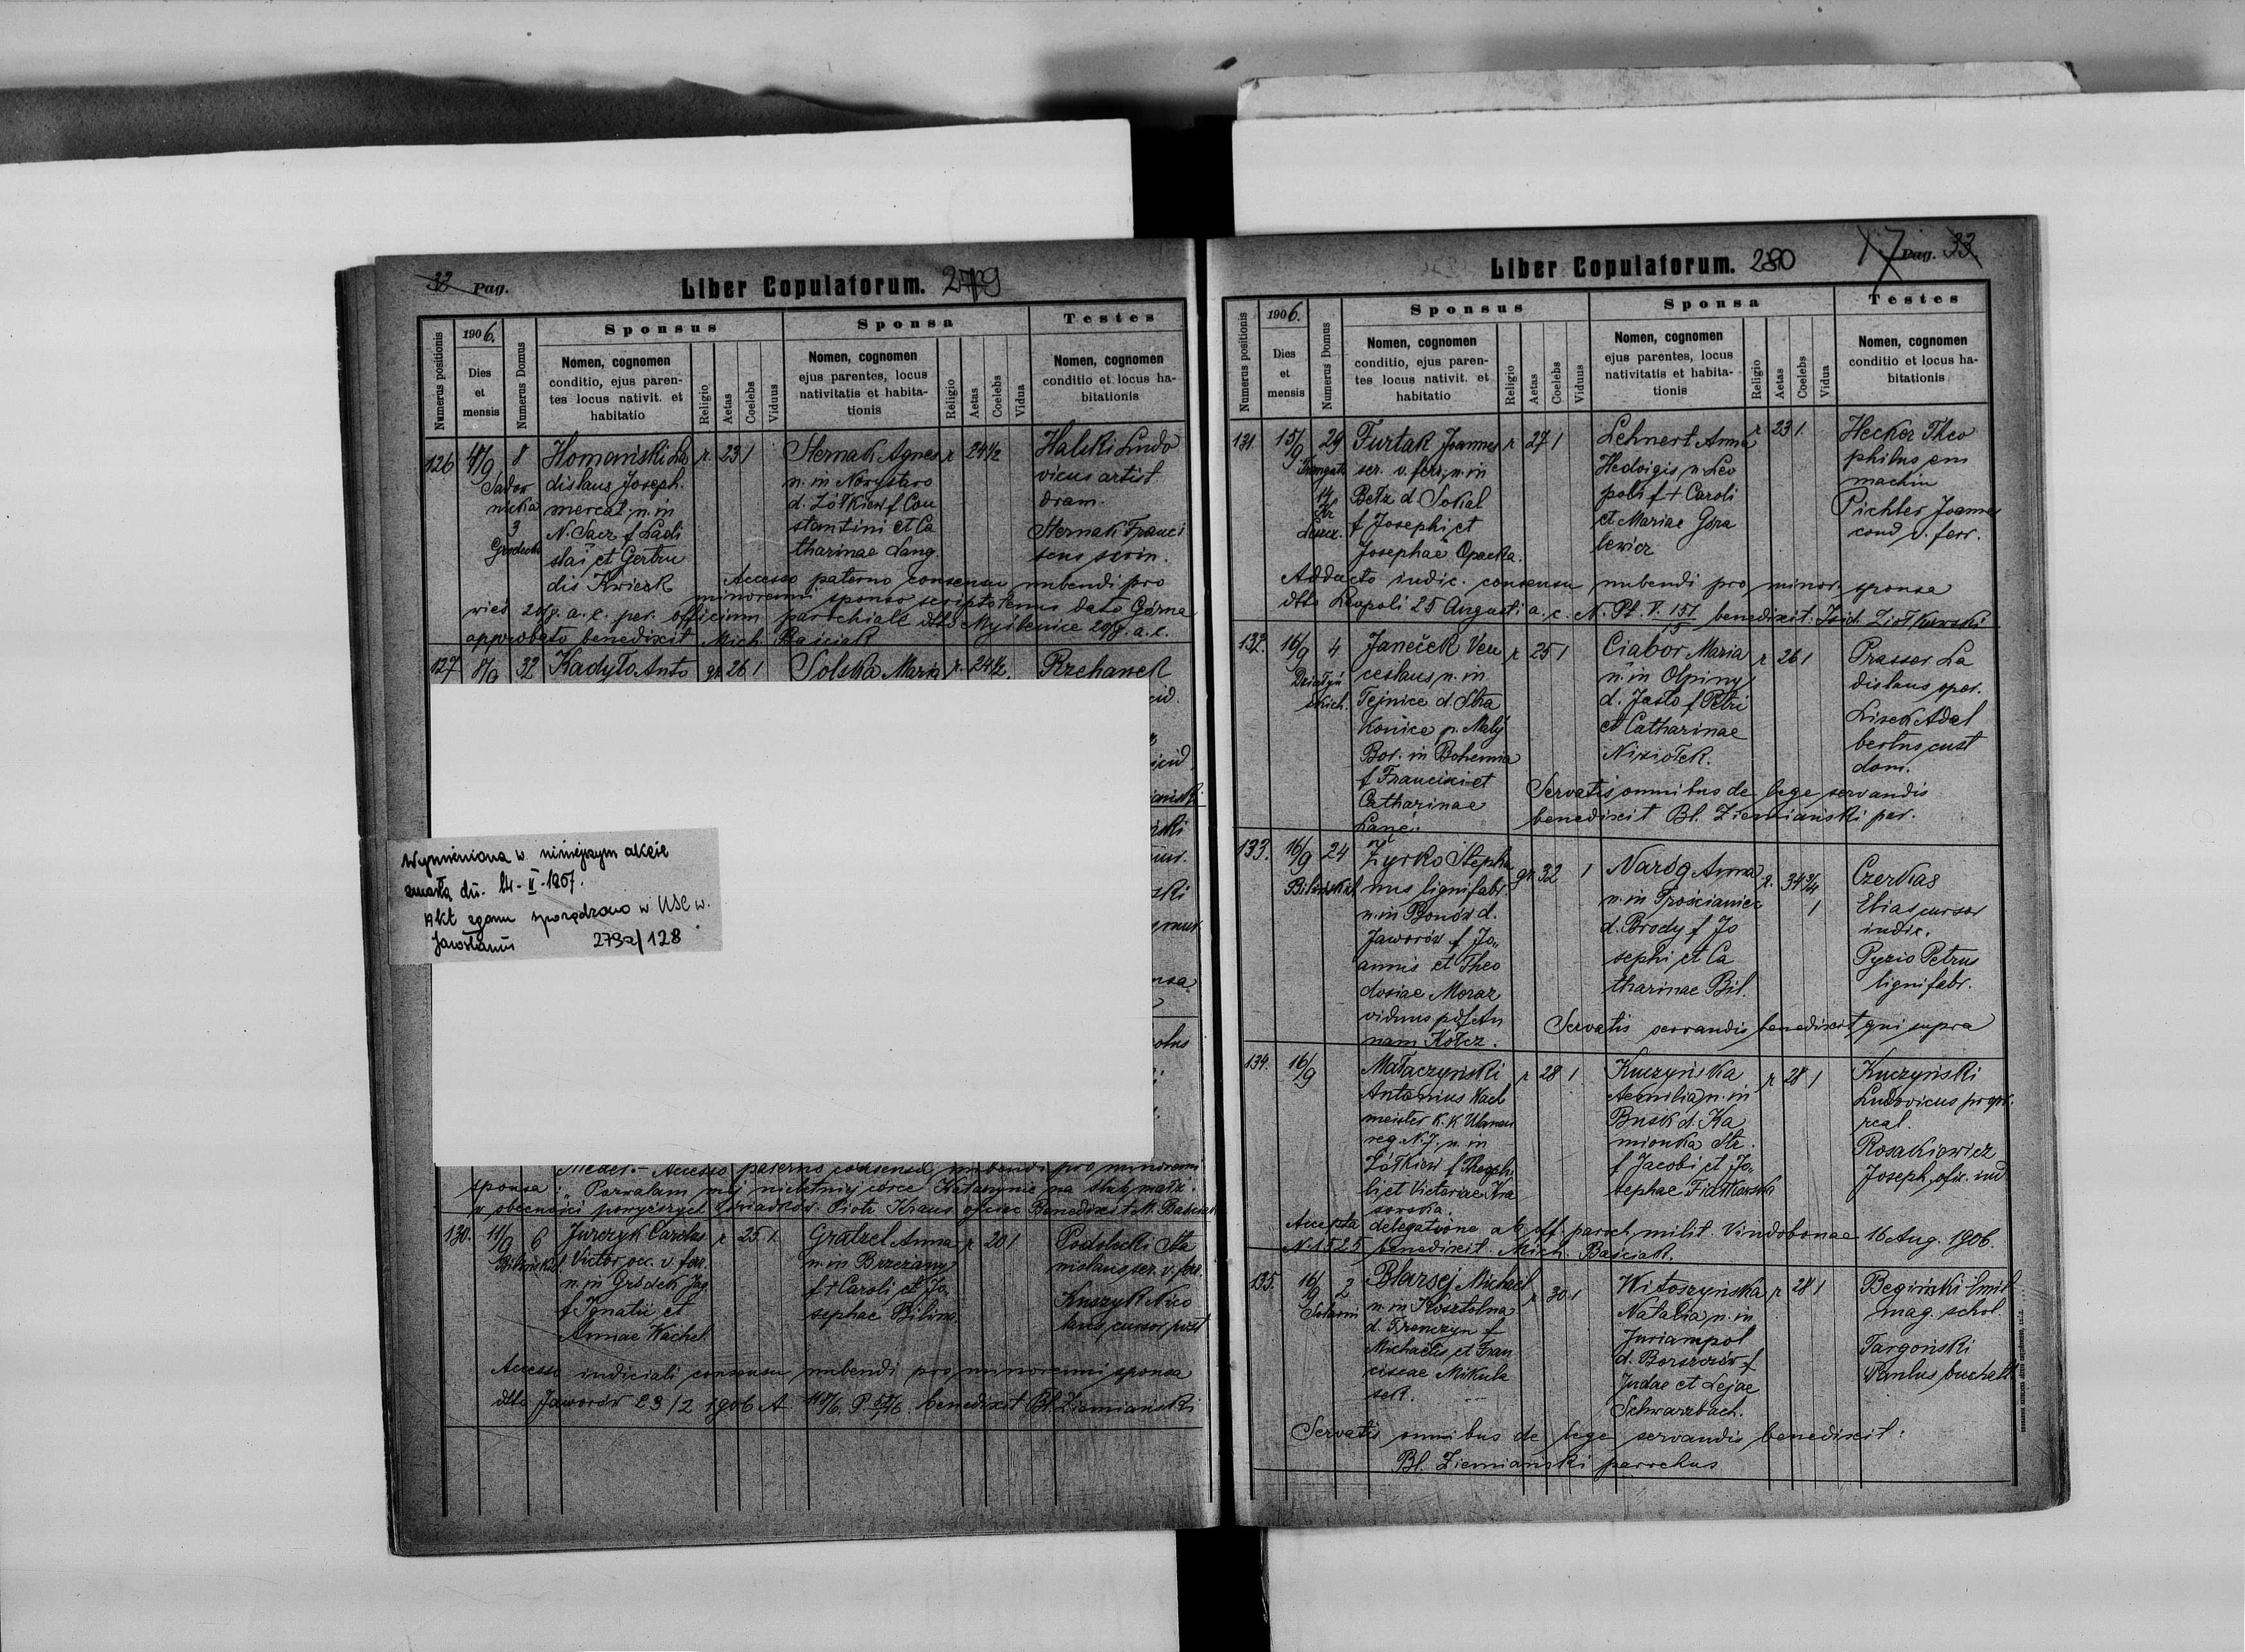 32 Pag.
Liber Copulatorum. 279
Numerus positionis
1906.
Dies
et
mensis
Numerus Domus
Sponsus
Nomen, cognomen
conditio, ejus paren-
tes locus nativit. et
habitatio
Religio
Aetas
Coelebs
Viduus
Sponsa
Nomen, cognomen
ejus parentes, locus
nativitatis et habita-
tionis
Religio
Aetas
Coelebs
Vidua
Testes
Nomen, cognomen
conditio et locus ha-
bitationis
126
8
Homański La
dislaus Joseph.
mercat. n. in
N. Sacz f. Ladi
slai et Gertru
dis Kwiczk
r. 23 1
Sternak Agnes
n. in Nowystaw
d. Żółkiew f. Con
stantini et Ca
tharinae Lang.
r 24 1/2
Halski Ludo
vicus artist
dram.
Sternak Franci
scus scrin.
Accesso paterno consensu nubendi pro
minorenni sponso scripto tenus dato Górna
wieś 20/8. a. c. per. officium parochiale dtto Myślenice 20/8. a. c.
approbato benedixit Mich. Baściak
127 8/9 32 Kadyło Anto gr. 26 1 Solska Maria r. 24 1/2 Rzehanek
Wymieniona w niniejszym akcie
zmarła dn. 24-II-1967.
Akt zgonu sporządzono w USC w.
Jarosławiu 279a/128
Meder. - Accesso paterno consensu nubendi pro minorenni
sponsa: "Pozwalam mej nieletniej córce Katarzynie na ślub małż.
w obecności powyższych świadków. Piotr Kraus ojciec Benedixit M. Baściak
130. 11/9 6
Jurczyk Carolus
Victor occ. v. ferr.
n. in Gródek Jag
f. Ignatii et
Annae Wachel.
r 25 1.
Gratzel Anna
n. in Brzeżany
f + Caroli et Jo
sephae Bilina.
r 20 1
Podolecki Sta
nislaus ser. v. ferr.
Kuszyk Nico
laus, cursor post
Accesso iudiciali consensu nubendi pro minorenni sponsa
dtto Jaworów 23/2 1906 A benedixit Bl. Ziemiański
Liber Copulatorum. 280
Pag. 33
Numerus positionis
1906.
Dies
et
mensis
Numerus Domus
Sponsus
Nomen, cognomen
conditio, ejus paren-
tes locus nativit. et
habitatio
Religio
Aetas
Coelebs
Viduus
Sponsa
Nomen, cognomen
ejus parentes, locus
nativitatis et habita-
tionis
Religio
Aetas
Coelebs
Vidua
Testes
Nomen, cognomen
conditio et locus ha-
bitationis
131. 15/9 29
Furtak Joannes
ser. v. ferr. n. in
Bełz d. Sokal
f Josephi et
Josephae Opacka.
r 27 1
Lehnert Anna
Hedvigis, n. Leo
poli f + Caroli
et Mariae Gora
lewicz
r 23 1.
Hecker Theo
philus em
machin
Pichler Joannes
cond v. ferr.
Adducto iudic. consensu nubendi pro minor. sponsa
dtto Leopoli 25 Augusti a. c. N. Pt. V. 151/15 benedixit: Ziołkowski
132. 16/9 4
Janeček Ven
ceslaus, n. in
Tejnice d. Stra
konice p. Malý
Bor. in Bohemia
f Francisci et
Catharinae
r 25 1
Ciabor Maria
n. in Olpiny
d. Jasło f Petri
et Catharinae
Niziołek.
r 26 1
Prasser La
dislaus oper.
Lisek Adal
bertus cust
dom.
Servatis omnibus de lege servandis
benedixit Bl. Ziemiański par.
133. 16/9 24
Żyrko Stepha
nus lignifabr.
n. in Bonów d.
Jaworów f. Jo,,
annis et Theo
dosiae Moraz
viduus post An
nam Kołcz.
gr. 32 1
Naróg Anna
n. in Trościaniec
d. Brody f Jo
sephi et Ca
tharinae Bil.
r. 34 3/4 1
Czerkas
Elias cursor
iudic.
Pyzio Petrus
lignifabr.
Servatis servandis benedixit qui supra
134. 16/9
Małaczyński
Antonius Wach
meister k. k Ulanen
reg. N. 7. n. in
Żółkiew f Theophi
li et Victoriae Kra
sowska.
r 28 1
Kuczyńska
Aemilia n. in
Busk d. Ka
mionka Str.
f Jacobi et Jo,,
sephae Fiałkowska
r 28 1
Kuczyński
Ludovicus propr.
real.
Rosakiewicz
Joseph, ofic. iud
Accepta delegatione ab off. paroch. milit. Vindobonae 16 Aug. 1906.
N. 1525 benedixit. Mich. Baściak.
135. 16/9 2
Blarsej Michael
n. in Kosztolna
d. Trenczyn f
Michaelis et Fran
ciscae Mikula
sek.
r 30 1
Witoszyńska
Natalia n. in
Juriampol
d. Borszczów f
Judae et Lejae
Schwarzbach.
r 28 1
Begiński Emil
mag. schol
Targoński
Paulus buchalt
Servatis omnibus de lege servandis benedixit:
Bl. Ziemiański parochus